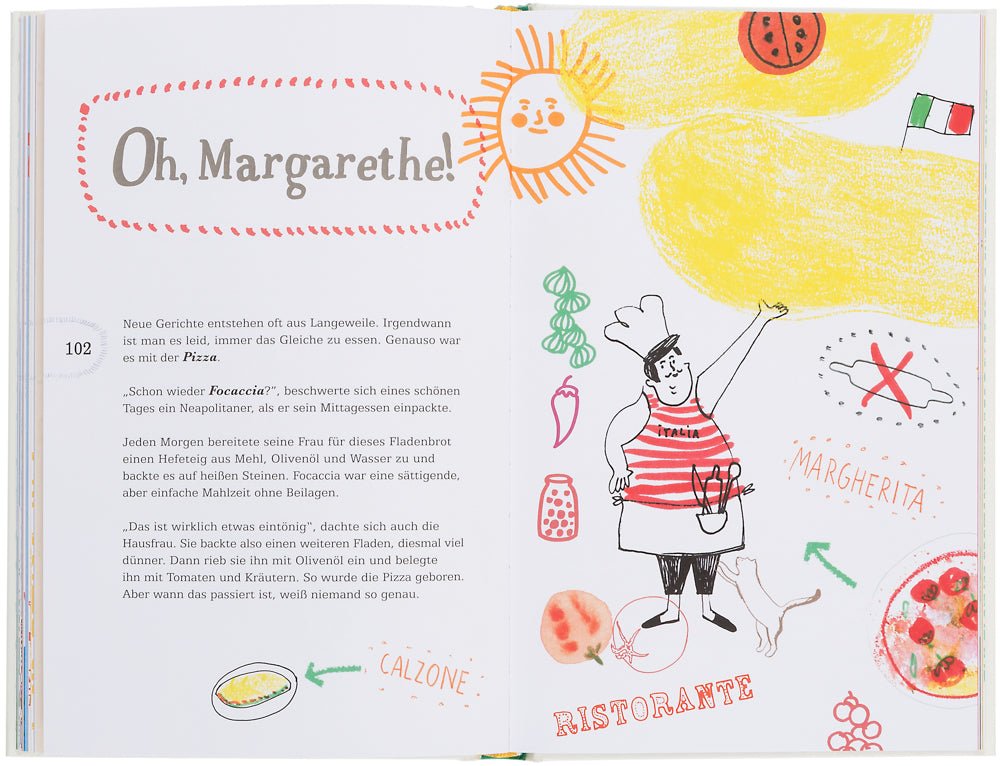 Oh, Margarethe!
102
Neue Gerichte entstehen oft aus Langeweile. Irgendwann
ist man es leid, immer das Gleiche zu essen. Genauso war
es mit der Pizza.
„Schon wieder Focaccia?“, beschwerte sich eines schönen
Tages ein Neapolitaner, als er sein Mittagessen einpackte.
Jeden Morgen bereitete seine Frau für dieses Fladenbrot
einen Hefeteig aus Mehl, Olivenöl und Wasser zu und
backte es auf heißen Steinen. Focaccia war eine sättigende,
aber einfache Mahlzeit ohne Beilagen.
„Das ist wirklich etwas eintönig“, dachte sich auch die
Hausfrau. Sie backte also einen weiteren Fladen, diesmal viel
dünner. Dann rieb sie ihn mit Olivenöl ein und belegte
ihn mit Tomaten und Kräutern. So wurde die Pizza geboren.
Aber wann das passiert ist, weiß niemand so genau.
CALZONE
ITALIA
MARGHERITA
RISTORANTE